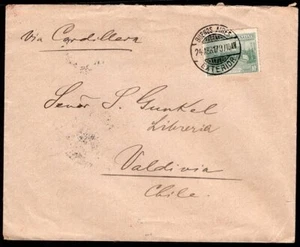 Via Cordillera
BUENOS AIRES
EXTERIOR
Señor S. Gunkel
Libreria
Valdivia
Chile.